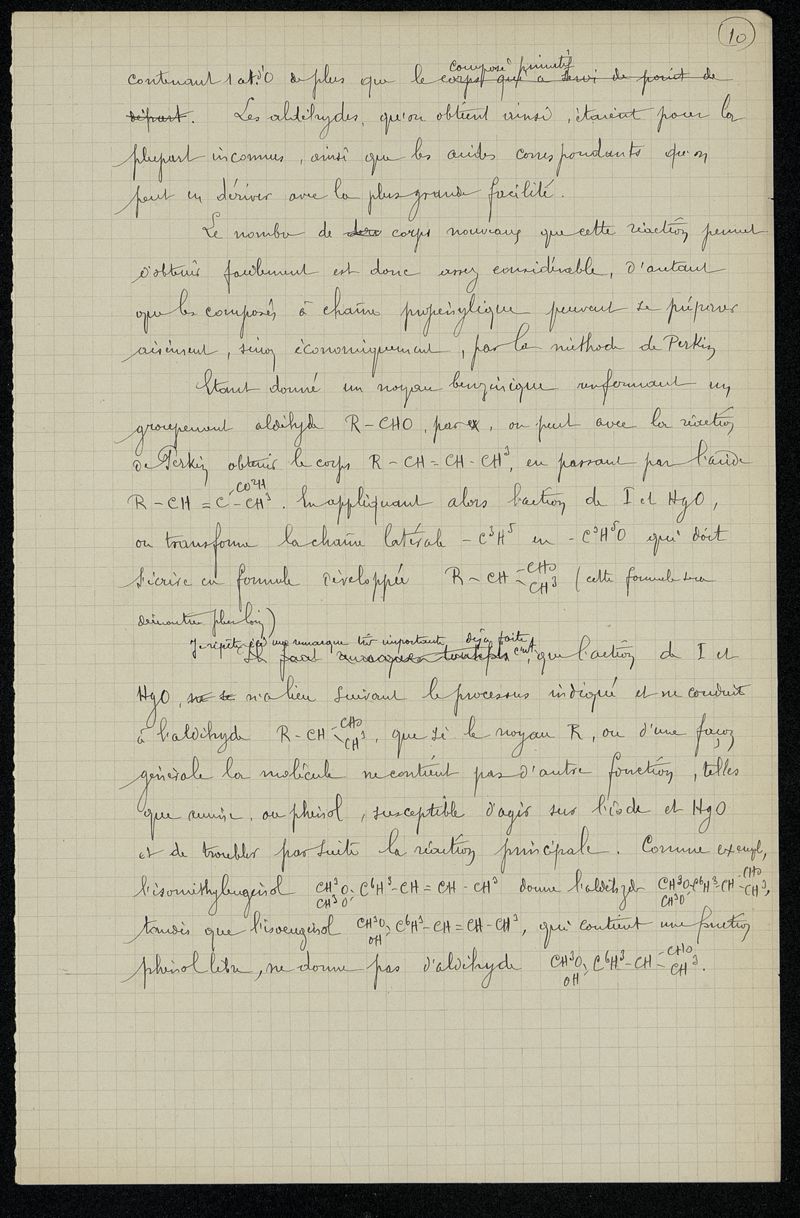 10
contenant 1 at. d'O de plus que le composé primitif corps qui a servi de point de
départ. Les aldéhydes, qu'on obtient ainsi, étaient pour la
plupart inconnus, ainsi que les acides correspondants qu'on
peut en dériver avec la plus grande facilité.
Le nombre de corps nouveaux que cette réaction permet
d'obtenir facilement est donc assez considérable, d'autant
que les composés à chaîne propénylique peuvent se préparer
aisément, sinon économiquement, par la méthode de Perkin
Etant donné un noyau benzénique renfermant un
groupement aldéhyde R-CHO, par ex, on peut avec la réaction
de Perkin obtenir le corps R-CH=CH-CH³, en passant par l'acide
R-CH=C-CO²H -CH³. En appliquant alors l'action de I et HgO,
on transforme la chaîne latérale -C³H⁵ en -C³H⁵O qui doit
s'écrire en formule développée R-CH-CHO -CH³ (cette formule sera
démontrée plus loin)
Je répète ici une remarque très importante, déjà faite
c'est, que l'action de I et
HgO, ne se n'a lieu suivant le processus indiqué et ne conduit
à l'aldéhyde R-CH-CHO -CH³, que si le noyau R, ou d'une façon
générale la molécule ne contient pas d'autre fonction, telles
que amine, ou phénol, susceptible d'agir sur l'iode et HgO
et de troubler par suite la réaction principale. Comme exemple,
l'isométhyleugénol CH³O CH³O C⁶H³-CH=CH-CH³ donne l'aldéhyde CH³O CH³O C⁶H³-CH-CHO -CH³,
tandis que l'isoeugénol CH³O OH C⁶H³-CH=CH-CH³, qui contient une fonction
phénol libre, ne donne pas d'aldéhyde CH³O OH C⁶H³-CH-CHO -CH³.